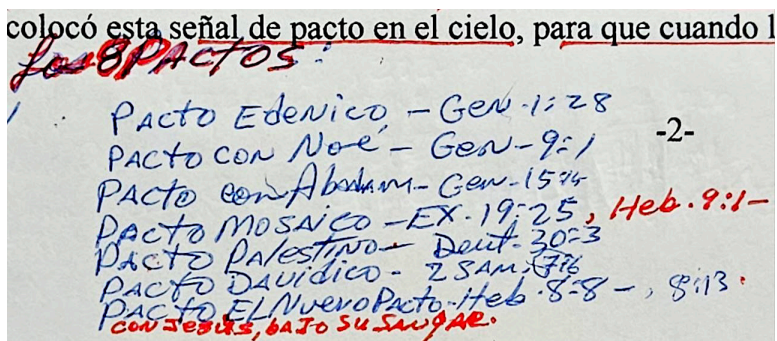 colocó esta señal de pacto en el cielo, para que cuando l
Los 8 PACTOS:
PACTO EdeNico - GeN. 1:28
-2-
PACTO CON Noé - GeN - 9:1
PACTO con Abraham - Gen - 15:
PACTO MOSAICO - EX. 19:25, Heb. 9:1-
PACTO PAlestINo - Deut. 30:3
PACTO DAVIdico - 2 SAM. 7:16
PACTO EL NueVo PActo - Heb. 8:8 -, 8:13.
CON JESUS, BAJO SU SANGRE.